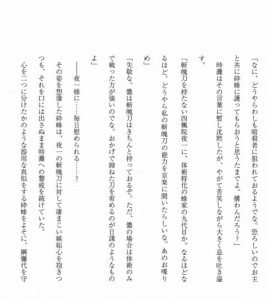 「なに、どうやらわしも暗殺者に狙われておるようでな。恐ろしいのでお主
と共に砕蜂に護ってもらおうと思うたまでよ。構わんだろう？」
時灘はその言葉に暫し沈黙したが、やがて苦笑しながら大きく息を吐き溢
す。
『斬魄刀を持たない四楓院夜一に、体術特化の蜂家の九代目か。なるほどな
るほど、どうやら私の斬魄刀の能力を京楽に聞いたらしいな。あのお喋り
め』
「失敬な。儂は斬魄刀はきちんと持っておるぞ。ただ、儂の場合は体術のみ
で戦った方が強いのでな。おかげで拗ねた刀を宥めるのが日課のようなもの
よ」
――夜一様に……毎日慰められる……？
その姿を想像した砕蜂は、夜一の斬魄刀に対して凄まじい嫉妬心を抱きつ
つも、それを口には出さぬまま時灘への警戒を続けていた。
心を二つに分けたかのような器用な真似をする砕蜂をよそに、綱彌代を守